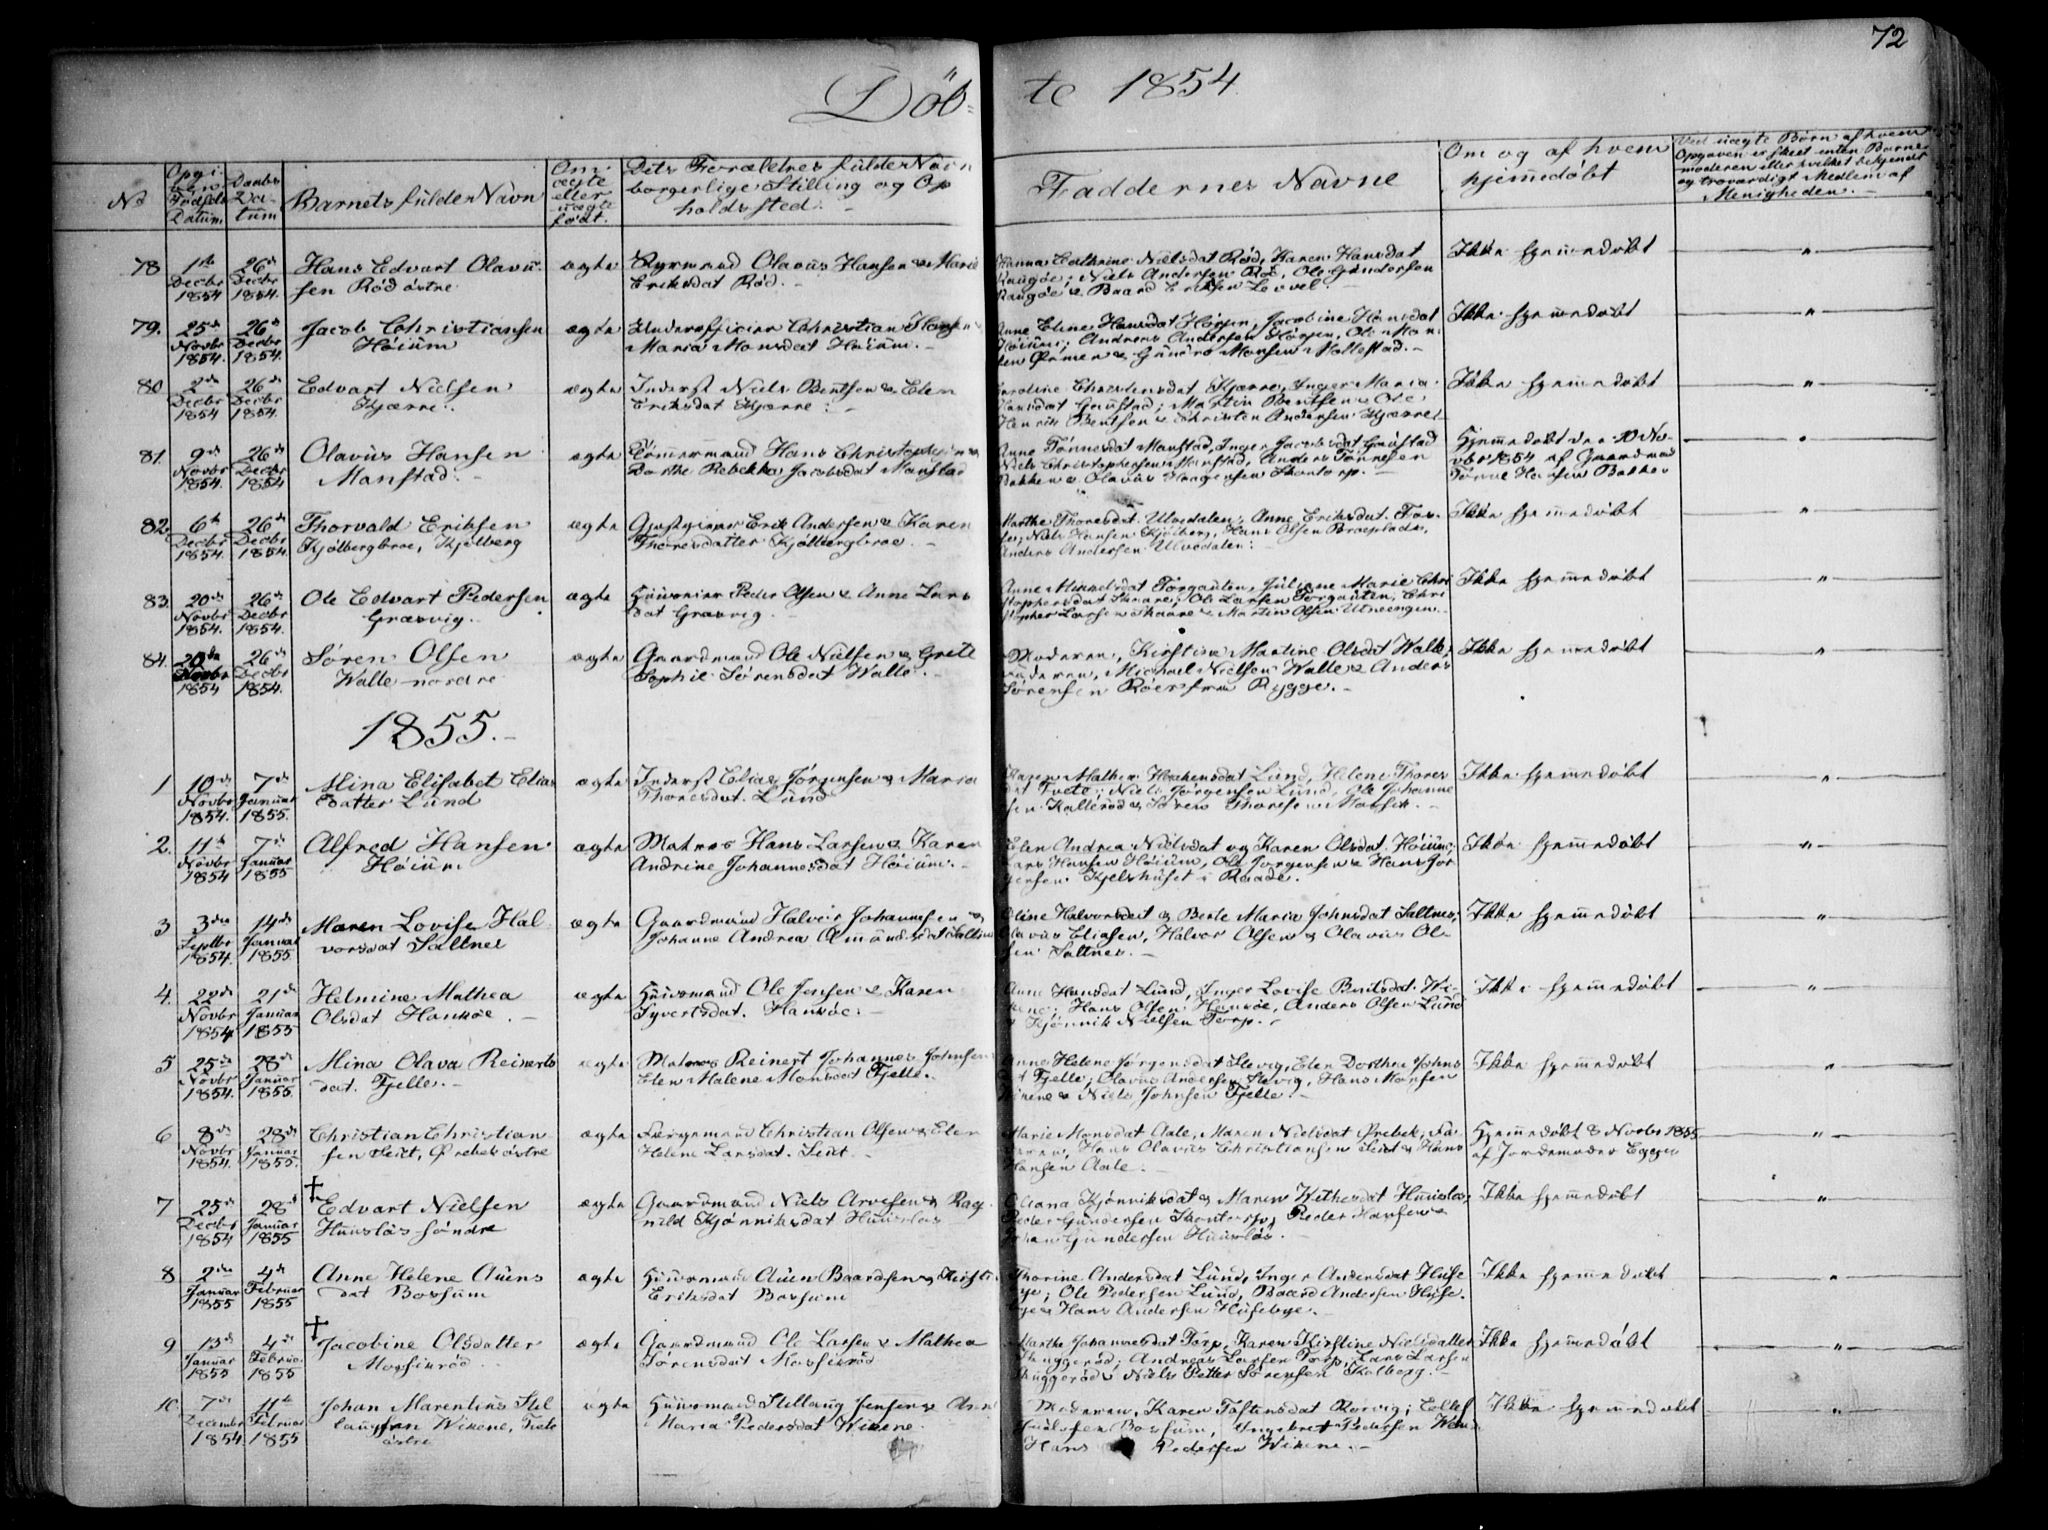 72
Döb-te 1854
No
Opgivne Fødsels Datum
Daabs Datum
Barnets fulde Navn
Om ægte eller uægte født.
Dets Forældres fulde Navn borgerlige Stilling og Opholdssted.
Faddernes Navne
Om og af hvem hjemmedøbt
Ved uægte Børn af hvem Opgaven er skeet enten Barnemoderen eller hvilket bekjendt og troværdigt Medlem af Menigheden.
78 1ste Decbr 1854 26de Decbr 1854. Hans Edvart Olavu-
sen Rød østre
ægte
Olavus Hansen & Marie
Eriksdat Rød.
Hanna Cathrine Nielsdat Rød, Karen Hansdat
Raugøe; Niels Andersen Rød, Ole Gundersen
Raugøe & Baard Eriksen
Ikke hjemmedøbt
79. 25de Novbr 1854. 26de Decbr 1854. Jacob Christiansen
Høium
ægte
Underofficier Christian Hansen
Maria Monsdat Høium.
Anne Eline Hansdat Jacobine Hansdat
Høium; Andreas Andersen
& Gunerd Monsen Mallestad.
Ikke hjemmedøbt
80. 2den Decbr 1854 26de Decbr 1854. Edvart Nielsen
Kjærre.
ægte
Inderst Niels Bentsen & Elen
Eriksdat Kjærre
Christensdat Kjærre, Inger Maria
Hansdat Gaustad; Martin Bentsen & Ole
Henrik Bentsen & Christen Andersen Kjærre
Ikke hjemmedøbt
81. 9de Novbr 1854. 26de Decbr 1854 Olavus Hansen
Manstad.
ægte
Tömmermand Hans Christophersen &
Berthe Rebekka Jacobsdat Manstad
Anne Tønnesdat Manstad, Inger Jacobsdat Gaustad
Niels Christophersen Manstad, Anders Tønnesen
Bakken & Olavus Haagensen Skontorp.
Hjemmedøbt den 10 No-
vbr 1854 af Gaardmand
Tønne Hansen Bakken
82. 6te Decbr 1854. 26de Decbr 1854. Thorvald Eriksen
Kjølbergbroe, Kjølberg
ægte
Gjestgiver Erik Andersen & Karen
Thoresdatter Kjølbergbroe.
Marthe Thoresdat. Ulvedalen, Anne Eriksdat.
Niels Hansen Kjølberg, Hans Olsen Broepladse,
Anders Andersen Ulvedalen.
Ikke hjemmedøbt
83. 20de Novbr 1854. 26de Decbr 1854. Ole Edvart Pedersen
Græsvig.
ægte
Peder Olsen & Anne Lars
dat Græsvig.
Anne Mikkelsdat Torgauten, Juliane Marie Chri
stophersdat Skaare; Ole Larsen Torgauten, Chri
stopher Larsen Skaare & Martin Olsen Utneengen.
Ikke hjemmedøbt
84. 20de Novbr 1854 26de Decbr 1854. Søren Olsen
Walle nordre
ægte
Gaardmand Ole Nielsen & Grete
Sophie Sørensdat Walle.
Moderen, Kirstine Martine Olsdat Walle,
Faderen, Michael Nielsen Walle & Anders
Sørensen Røer fra Rygge.
Ikke hjemmedøbt
1855.
1 10de Novbr 1854. 7de Januar 1855. Mina Elisabet Elias
datter Lund
ægte
Inderst Elias Jørgensen & Maria
Thoresdat. Lund
Karen Mathea Haakensdat Lund, Helene Thores
dat Tvete; Niels Jørgensen Lund, Ole Johanne
sen Kallerød & Søren Thoresen
Ikke hjemmedøbt
2. 11te Novbr 1854 7de Januar 1855 Alfred Hansen
Høium
ægte
Matros Hans Larsen & Karen
Andrine Johannesdat Høium.
Elen Andrea Nielsdat og Karen Olsdat. Høium;
Lars Hansen Høium, Ole Jørgensen & Hans Jør
gensen Kjelshuset i Raade.
Ikke hjemmedøbt
3 3die Septbr 1854. 14de Januar 1855. Maren Lovise Hal-
vorsdat Saltnes
ægte
Gaardmand Halvor Johannesen &
Johanne Andrea Amundsdat Saltnes
Oline Halvorsdat & Berte Maria Johnsdat Saltnes;
Olavus Eliasen, Halvor Olsen & Olavus Ol-
sen Saltnes.
Ikke hjemmedøbt
4. 22de Novbr 1854 21de Januar 1855 Helmine Mathea
Olsdat Hankøe.
ægte
Huusmand Ole Jensen & Karen
Syvertsdat. Hankøe.
Anne Hansdat Lund, Inger Lovise Bentsdat. Wi-
kene; Hans Olsen Hankøe, Anders Olsen Lund
& Kjønnik Nielsen Torp.
Ikke hjemmedøbt
5 25de Novbr 1854. 28de Januar 1855. Mina Olava Reinerts
dat. Fjelle.
ægte
Matros Reinert Johannes Johnsen
Elen Malene Monsdat Fjelle.
Anne Helene Jørgensdat Slevig, Elen Dorthea Johns
dat Fjelle; Olavus Andersen Slevig, Hans Monsen
Wikene & Niels Johnsen Fjelle.
Ikke hjemmedøbt
6 8de Novbr 1854. 28de Januar 1855. Christian Christian-
sen Leiet, Ørebek østre
ægte
Færgemand Christian Olsen & Elen
Helene Larsdat. Leiet.
Marie Monsdat Aale, Maren Nielsdat Ørebek, Fa-
deren, Hans Olavus Christiansen Leiet & Hans
Hansen Aale.
Hjemmedøbt 8 Novbr 1855
af Jordemoder Egger
7 25de Decbr 1854 28de Januar 1855 † Edvart Nielsen
Huusløs søndre
ægte
Gaardmand Niels Arvesen & Rag-
nild Kjønniksdat Huusløs
Oliana Kjønniksdat & Maren Wethesdat Huusløs,
Peder Gundersen Skontorp, Peder Hansen &
Johan Gundersen Huusløs.
Ikke hjemmedøbt
8 2den Januar 1855 4de Februar 1855 Anne Helene Auens
dat Bossum
ægte
Huusmand Auen Baardsen &
Eriksdat Bossum
Thorine Andersdat Lund, Inger Andersdat Huse
bye; Ole Pedersen Lund, Baard Andersen Huse-
bye & Hans Andersen Husebye.
Ikke hjemmedøbt
9 13de Januar 1855 4de Februar 1855 † Jacobine Olsdatter
Mossikrød
ægte
Gaardmand Ole Larsen & Mathea
Sørensdat Mossikrød
Marthe Johannesdat Torp, Karen Kirstine Nielsdatter
Skuggerød; Andreas Larsen Torp, Lars Larsen
Skuggerød & Niels Petter Sørensen Kølberg.
Ikke hjemmedøbt
10. 7de December 1854 11te Februar 1855 Johan Marentius Stil-
laugsen Wikene, Fjeld
østre
ægte
Huusmand Stillaug Jensen & Ann
Maria Pedersdat Wikene.
Moderen, Karen Tostensdat Rørvig;
Bossum, Ingebret Pedersen
Hans Pedersen Wikene.
Ikke hjemmedøbt